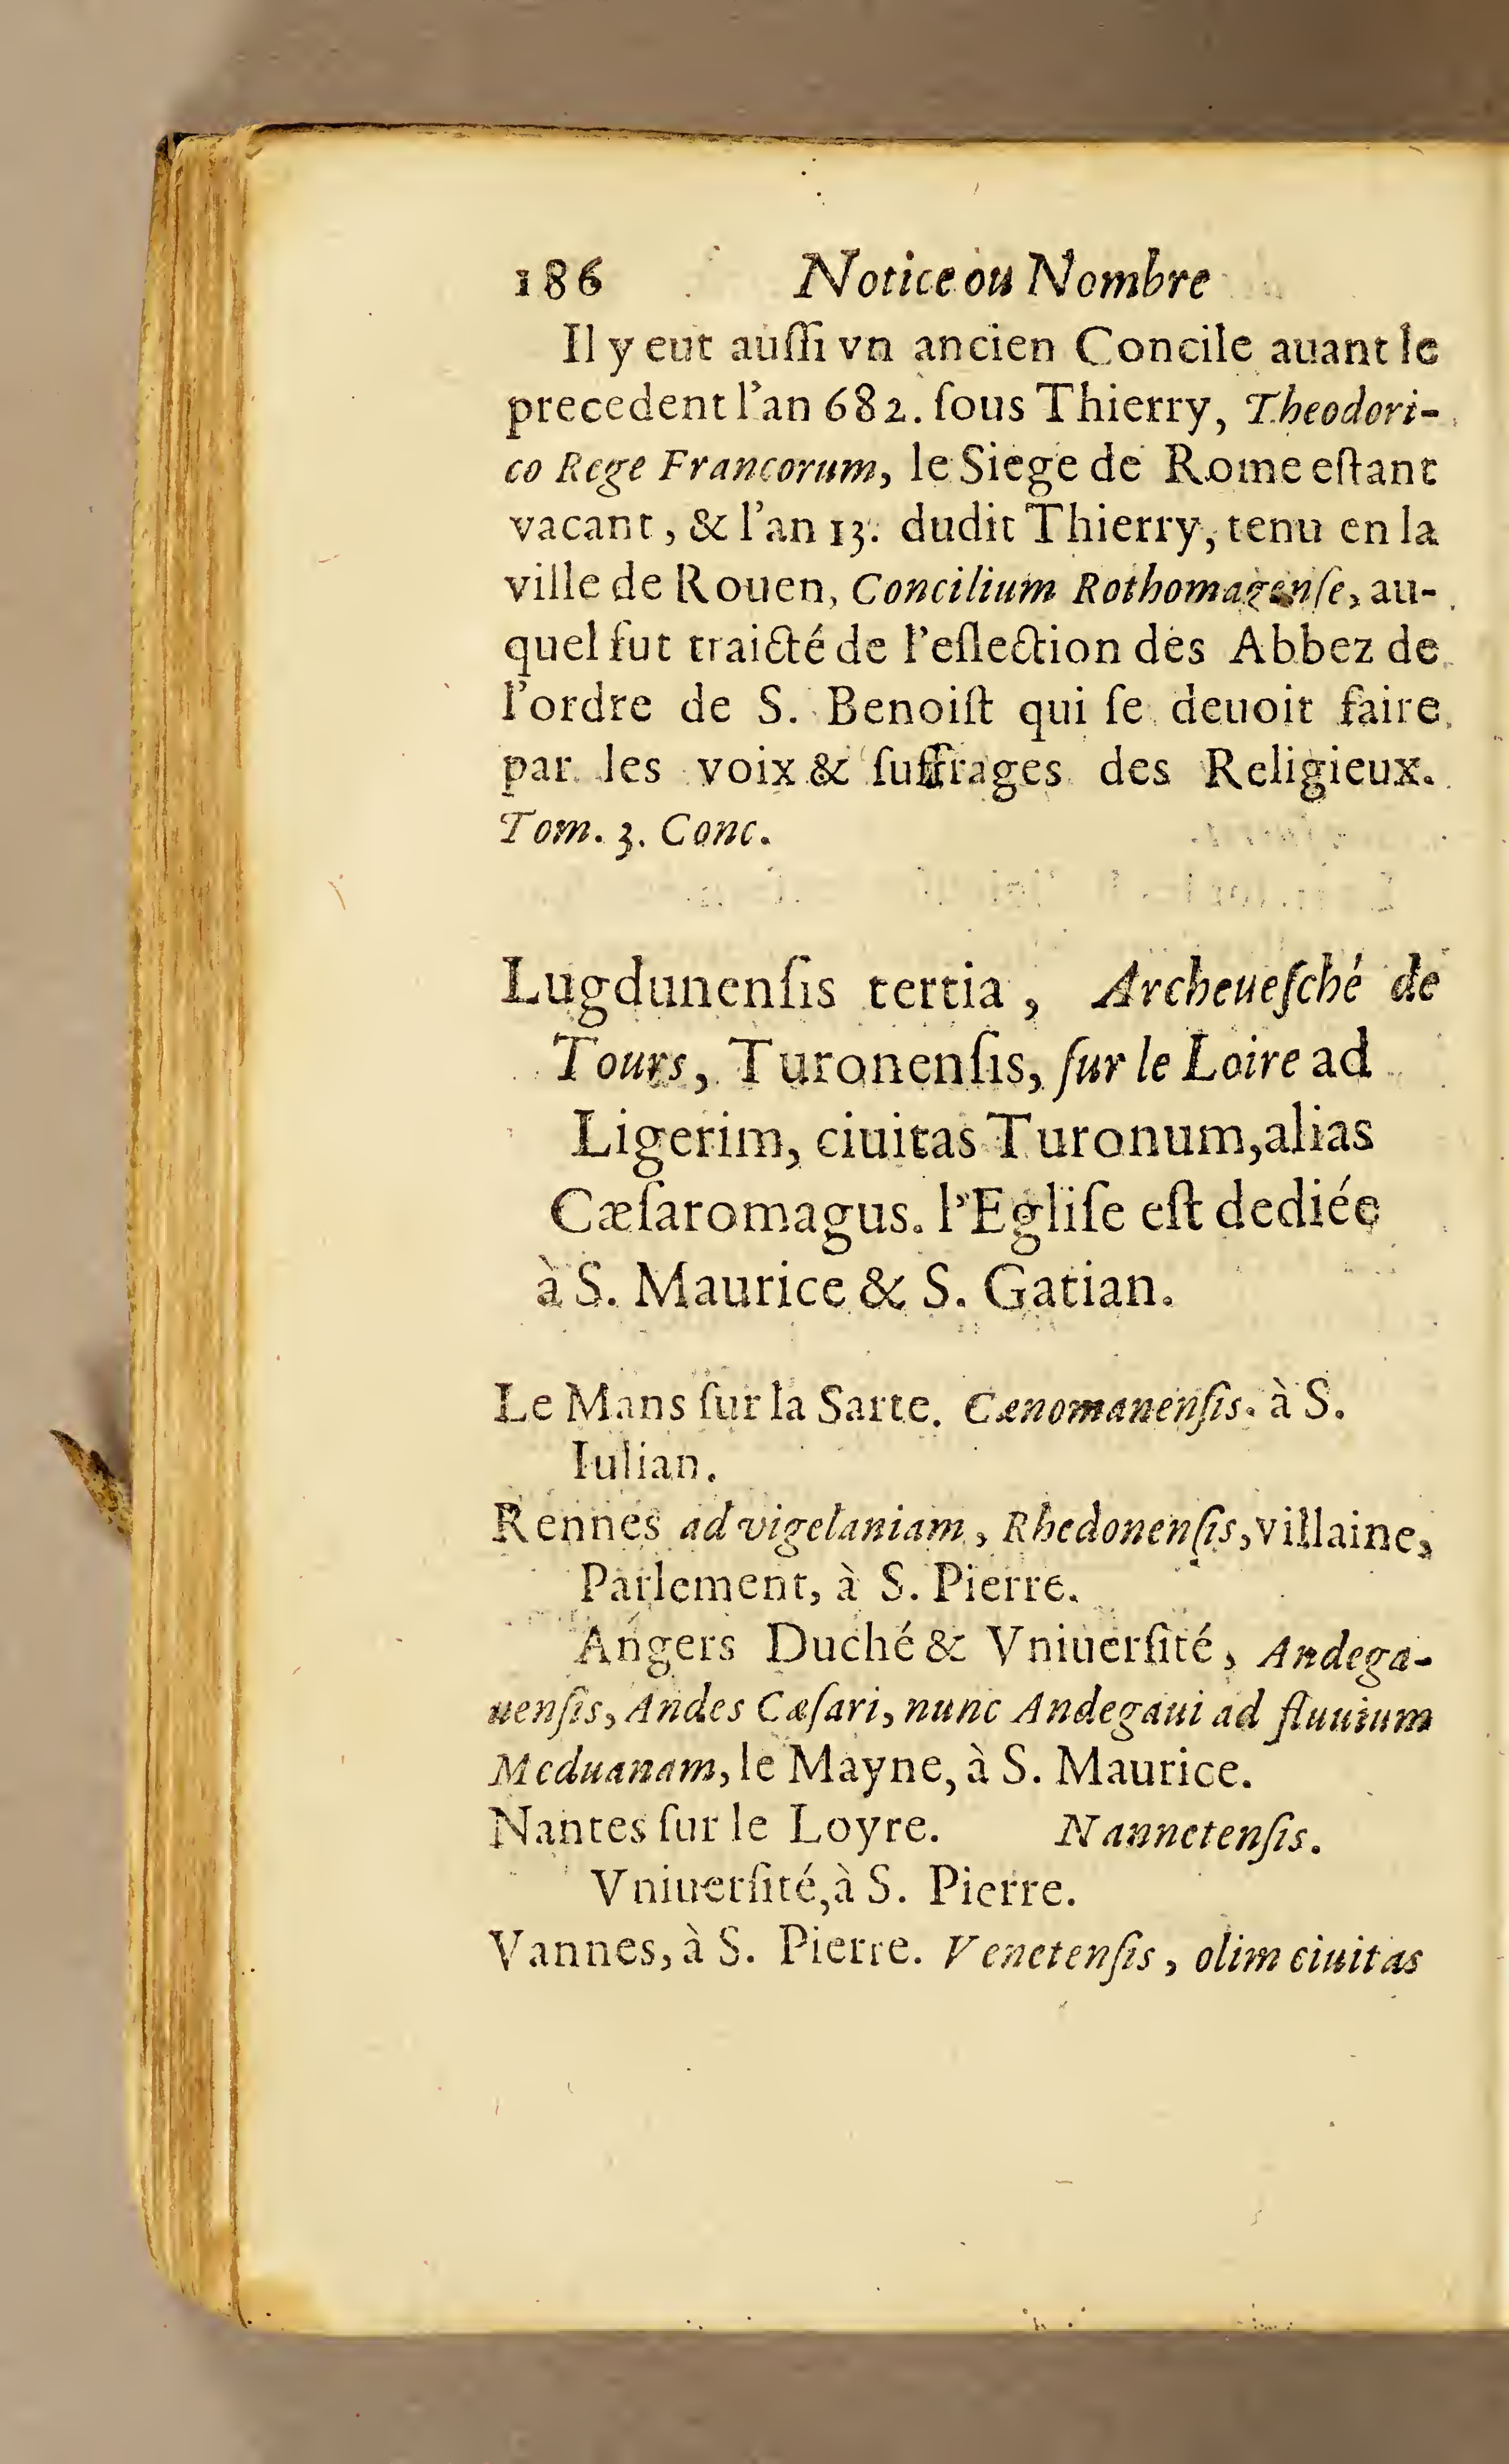 186 Notice ou Nombre
Il y eut auſſi vn ancien Concile auant le
precedent l'an 682. ſous Thierry, Theodori-
co Rege Francorum, le Siege de Rome eſtant
vacant, & l'an 13. dudit Thierry, tenu en la
ville de Rouen, Concilium Rothomagenſe, au-
quel fut traicté de l'eſlection des Abbez de
l'ordre de S. Benoiſt qui ſe deuoit faire
par les voix & ſuffrages des Religieux.
Tom. 3. Conc.
Lugdunenſis tertia, Archeueſché de
Tours, Turonenſis, ſur le Loire ad
Ligerim, ciuitas Turonum, alias
Cæſaromagus. l'Egliſe eſt dediée
à S. Maurice & S. Gatian.
Le Mans ſur la Sarte. Cænomanenſis. à S.
Iulian.
Rennes ad vigelaniam, Rhedonenſis, villaine,
Parlement, à S. Pierre.
Angers Duché & Vniuerſité, Andega-
uenſis, Andes Cæſari, nunc Andegaui ad fluuium
Meduanam, le Mayne, à S. Maurice.
Nantes ſur le Loyre. Nannetenſis.
Vniuerſité, à S. Pierre.
Vannes, à S. Pierre. Venetenſis, olim ciuitas